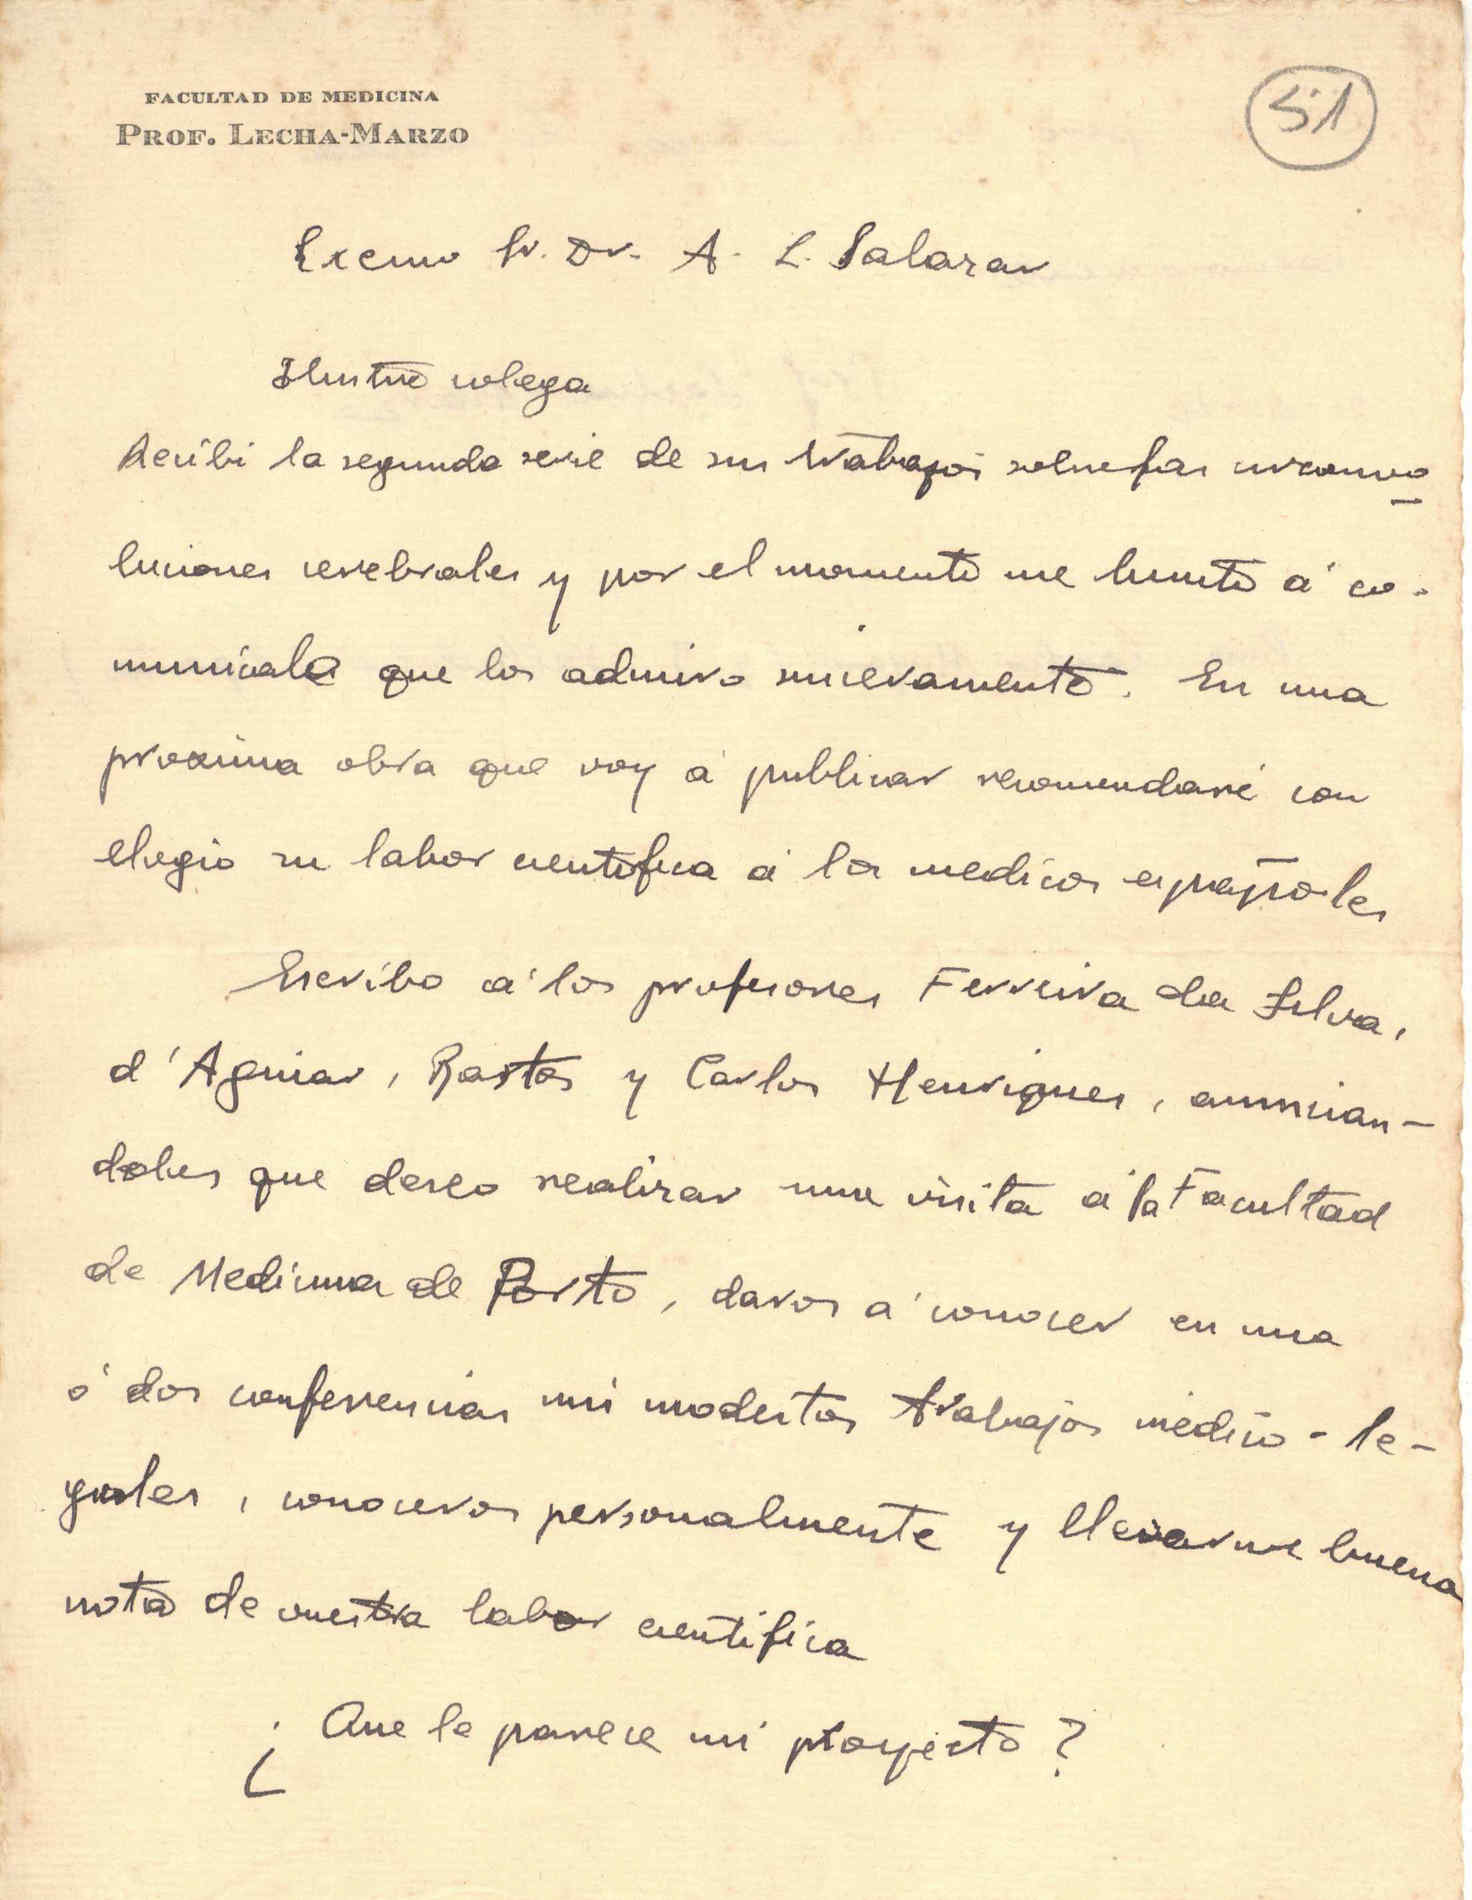 FACULTAD DE MEDICINA
PROF. LECHA-MARZO
51
Excmo Sr. Dr. A. L. Salazar
Ilustre colega
Recibi la segunda serie de sus trabajos sobre las circunvo
luciones cerebrales y por el momento me limito á co-
municale que los admiro sinceramente. En una
proxima obra que voy á publicar recomendaré con
elogio su labor cientifica á los medicos españoles
Escribo á los profesores Ferreira da Silva,
d'Aguiar, Bastos y Carlos Henriques, anuncian-
doles que deseo realizar una visita á la Facultad
de Medicina de Porto, daros á conocer en una
ó dos conferencias mis modestos trabajos médico-le-
gales, conoceros personalmente y llevarme buena
nota de vuestra labor cientifica
¿Que le parece mi proyecto?